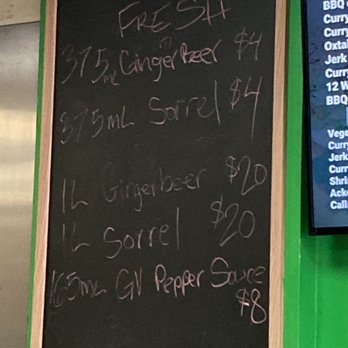 FRESH
375mL GingerBeer $4
375mL Sorrel $4
1L Gingerbeer $20
1L Sorrel $20
165mL GV Pepper Sauce
$8
BBQ
Curry
Curr
Oxta
Jerk
Curr
12 W
BBQ
Vege
Curry
Jerk
Curr
Shri
Acke
Calla